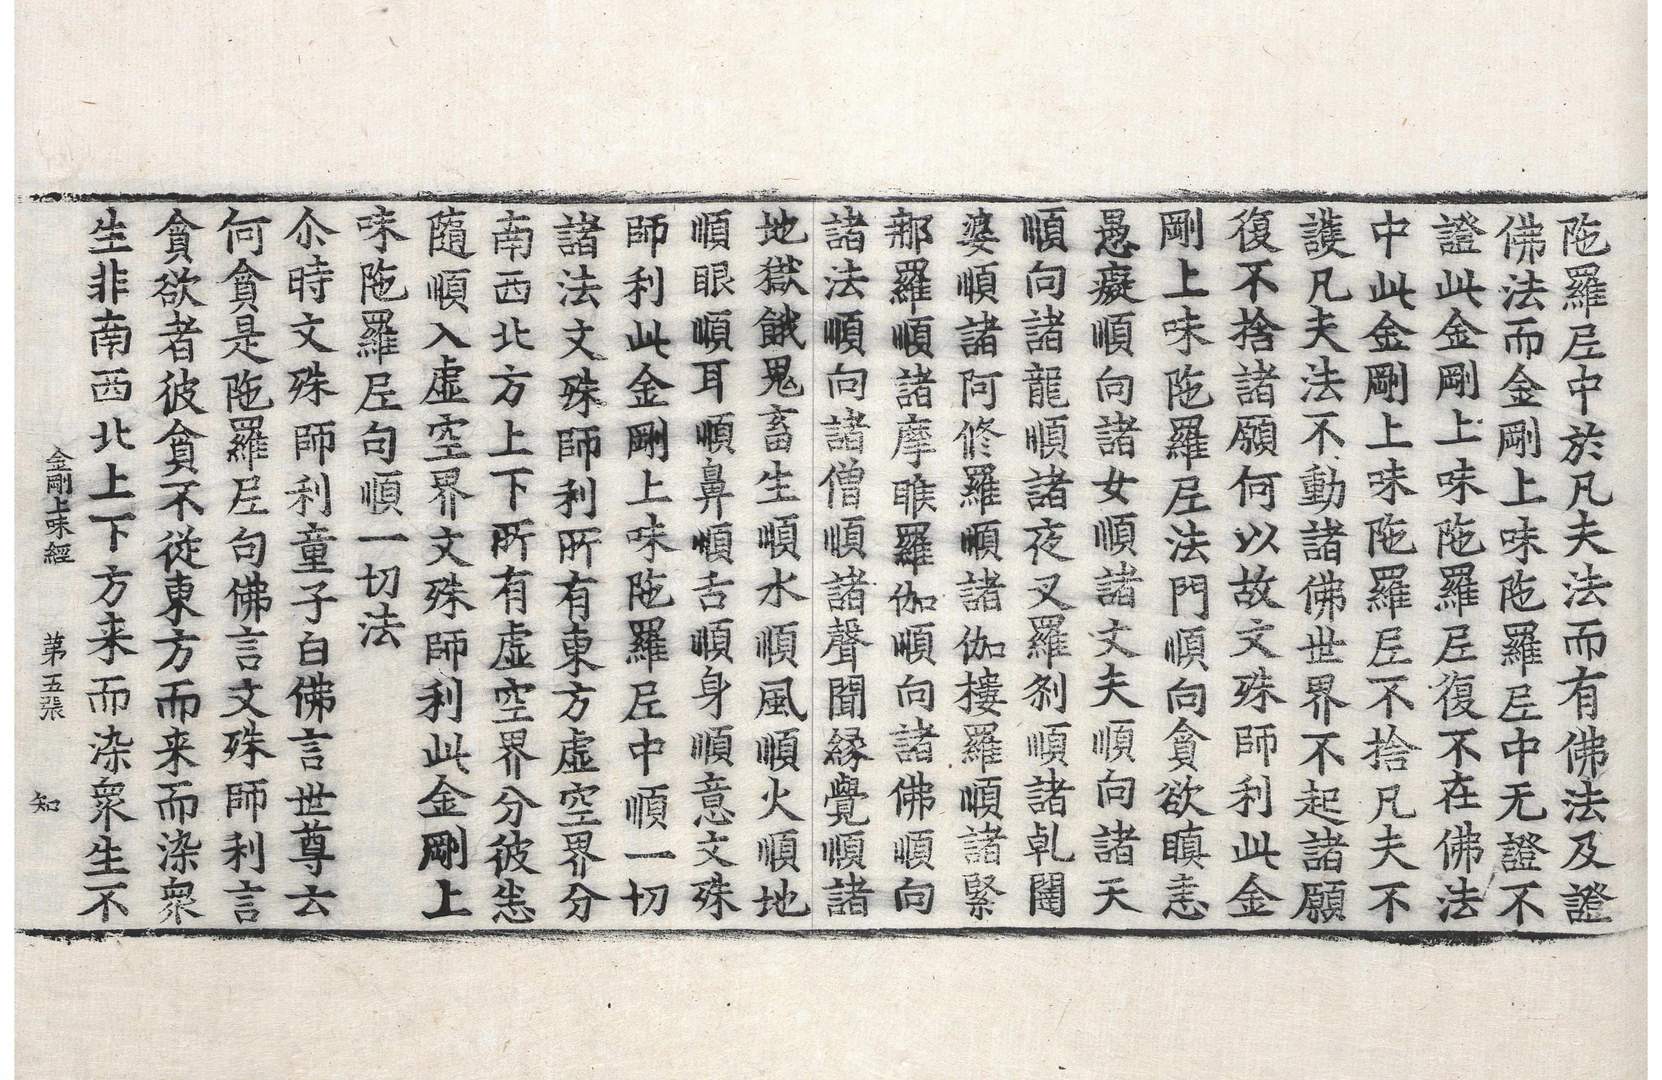 陁羅尼中於凡夫法而有佛法及證
佛法而金剛上味陁羅尼中无證不
證此金剛上味陁羅尼復不在佛法
中此金剛上味陁羅尼不捨凡夫不
護凡夫法不動諸佛世界不起諸願
復不捨諸願何以故文殊師利此金
剛上味陁羅尼法門順向貪欲瞋恚
愚癡順向諸女順諸丈夫順向諸天
順向諸龍順諸夜叉羅刹順諸乹闥
婆順諸阿修羅順諸伽樓羅順諸緊
那羅順諸摩睺羅伽順向諸佛順向
諸法順向諸僧順諸聲聞縁覺順諸
地獄餓鬼畜生順水順風順火順地
順眼順耳順鼻順舌順身順意文殊
師利此金剛上味陁羅尼中順一切
諸法文殊師利所有東方虛空界分
南西北方上下所有虛空界分彼恙
隨順入虛空界文殊師利此金剛上
味陁羅尼句順一切法
尒時文殊師利童子白佛言世尊云
何貪是陁羅尼句佛言文殊師利言
貪欲者彼貪不從東方而来而染衆
生非南西北上下方来而染衆生不
金剛上味經　第五張　知